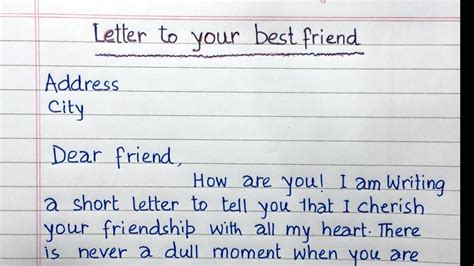 Letter to your best friend
Address
City
Dear friend,
How are you! I am Writing
a short letter to tell you that I cherish
your friendship with all my heart. There
is never a dull moment when you are